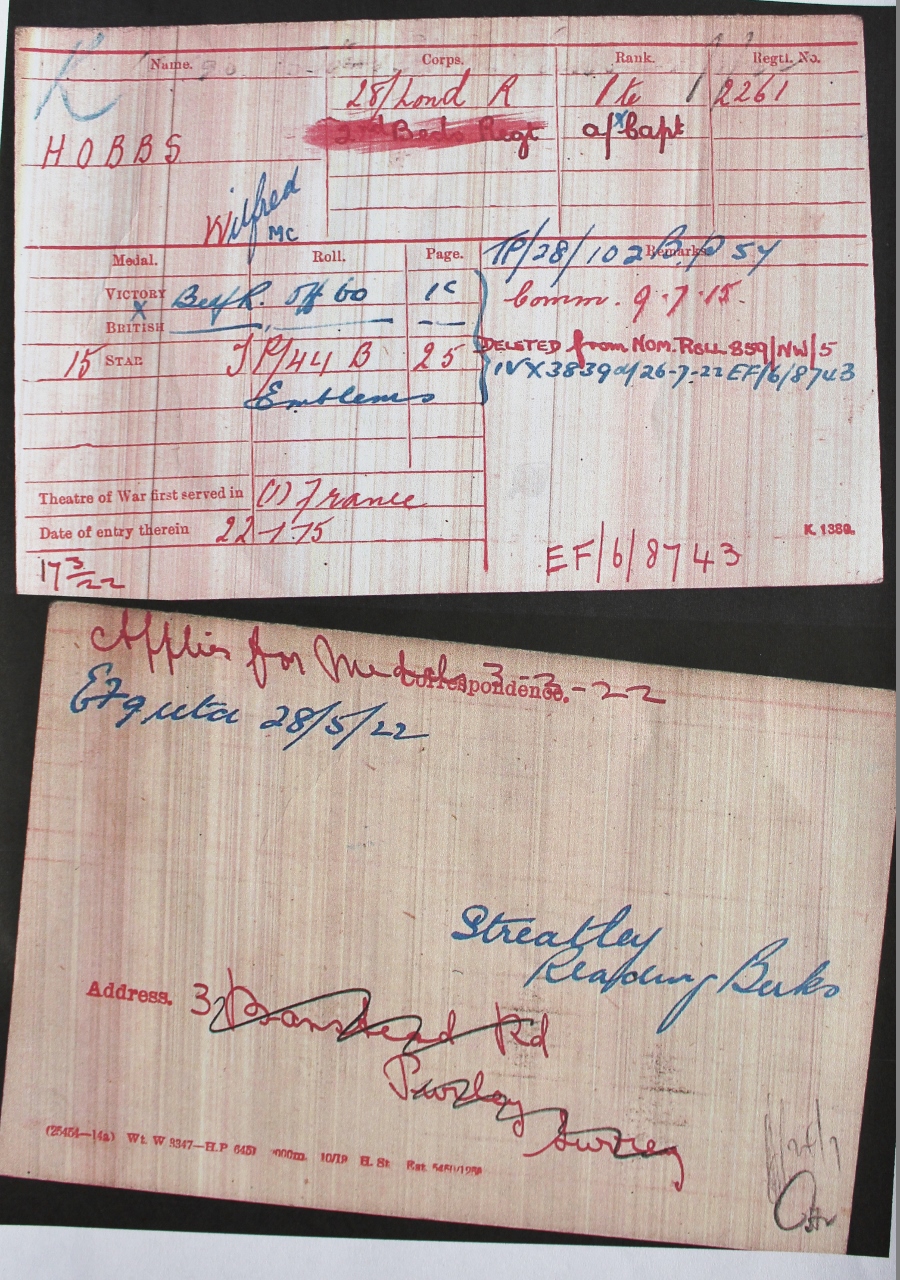 K
Name. Corps. Rank. Regtl. No.
28/Lond R Pte 2261
3rd Beds Regt a/Capt
HOBBS
Wilfred
MC
TP/28/102 B.P 54
Medal. Roll. Page. Remarks.
VICTORY Bedf R. Off 60 1C
X
BRITISH
Comm. 9.7.15.
15 STAR TP/44 B 25
DELETED from NOM. ROLL 859/NW/5
IVX3839 of 26-7-22 EF/6/8743
Emblems
Theatre of War first served in (1) France
Date of entry therein 22-1-15
K. 1380.
EF/6/8743
17 3/22
Applies for Medals 3-3-22
Correspondence.
28/5/22
Streatley
Reading Berks
Address. 32 Banstead Rd
Purley
Surrey
(25454—14a) Wt. W 3347—H.P 000m. 10/19 H. St